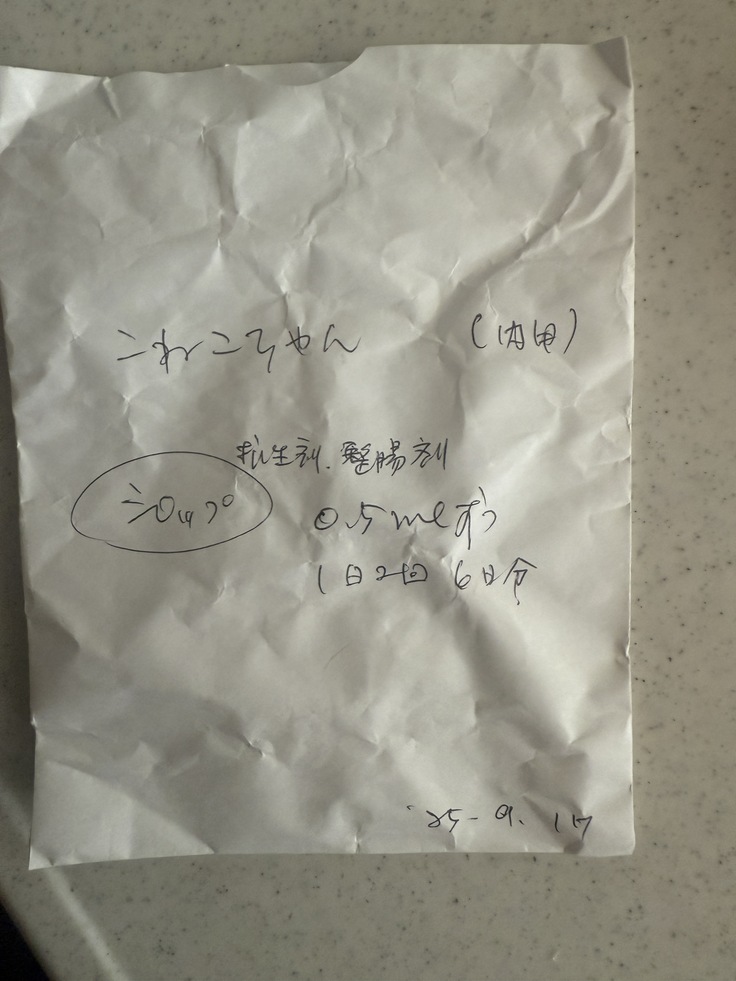 こねこちゃん (内用)
抗生剤.整腸剤
シロップ 0.5mlずつ
1日2回 6日分
'25-9.17